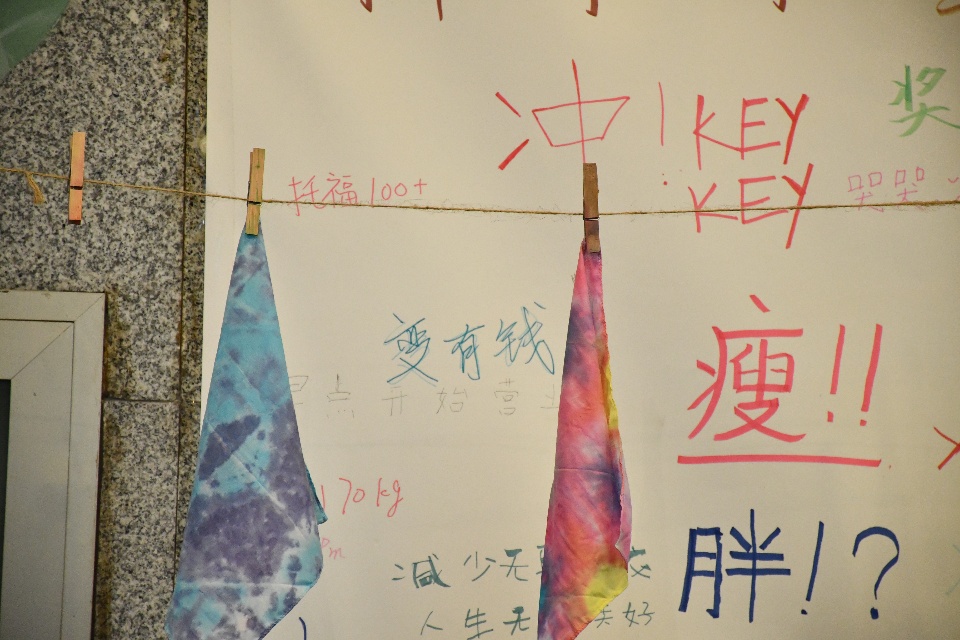 奖
冲! KEY
KEY
托福100+
哭哭
变有钱
瘦!!
早点开始营业
170kg
减少无
胖!?
人生无
好